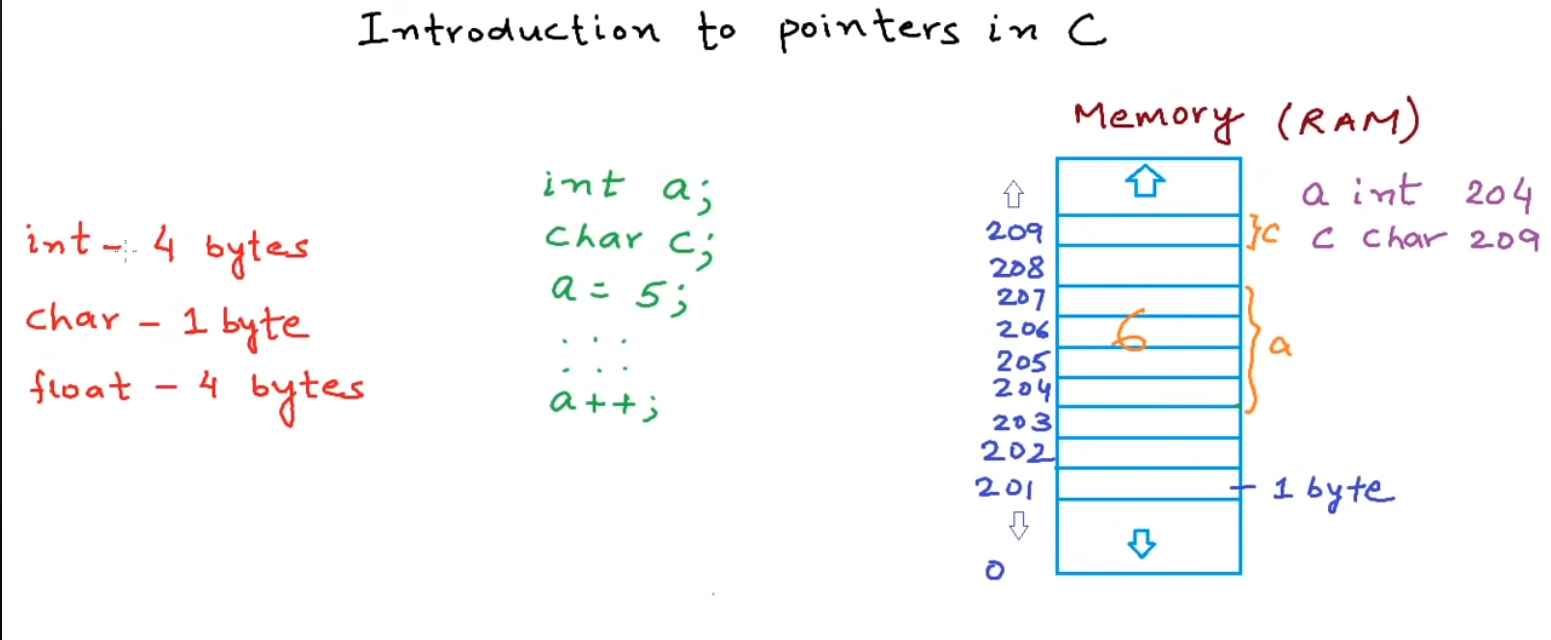 Introduction to pointers in C
int - 4 bytes
char - 1 byte
float - 4 bytes
int a;
char c;
a = 5;
...
...
a++;
Memory (RAM)
209
208
207
206
205
204
203
202
201
0
6
}c
}a
1 byte
a int 204
c char 209